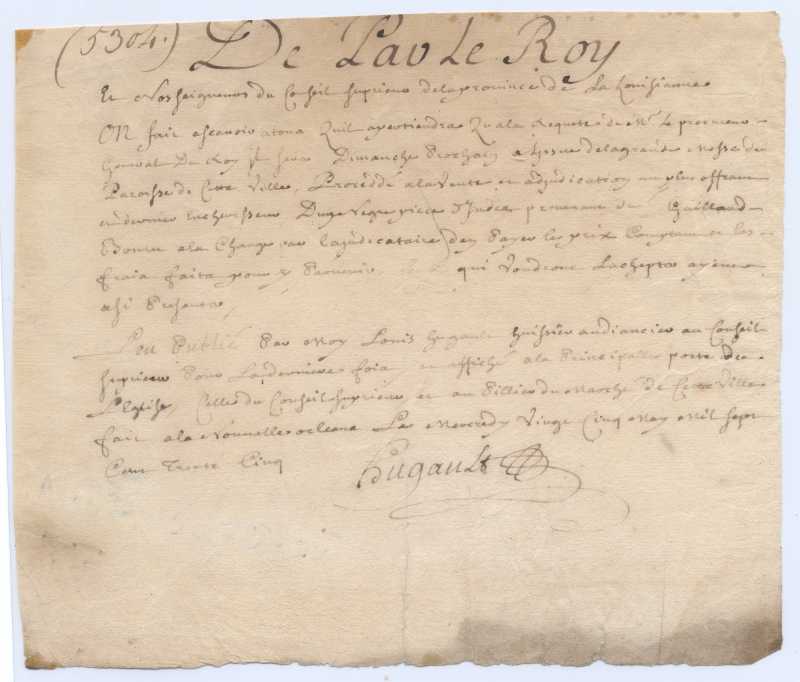 (5304.) De Par Le Roy
Et Nosseigneurs du Conseil Superieur de la province de La Louisianne
On fait ascavoir a tous Quil apartiendra Qua la Requette de Mr. le procureur
General Du Roy il sera Dimanche Prochain a Lissue de la grande Messe de
Paroisse de Cette Ville, Procéddé a la Vente et adjudication au plus offrant
et dernier Encherisseur Dune Negre piece d'Inde provenant du Gaillard
a la Charge par ladjudicataire den Payer le prix Comptant et les
fraix faits pour y Parvenir, qui Voudront Lachepter
Presenter,
Leu Publié Par Moy Louis hugault huissier audiancier au Conseil
Superieur Pour La derniere fois, et affiché a la Principalle porte de
LEglise, Celle du Conseil Superieur, et au Pillier du Marché de Cette Ville
fait a la Nouvelle orleans Le Mercredy Vingt Cinq May Mil Sept
Cent Trente Cinq
Hugault